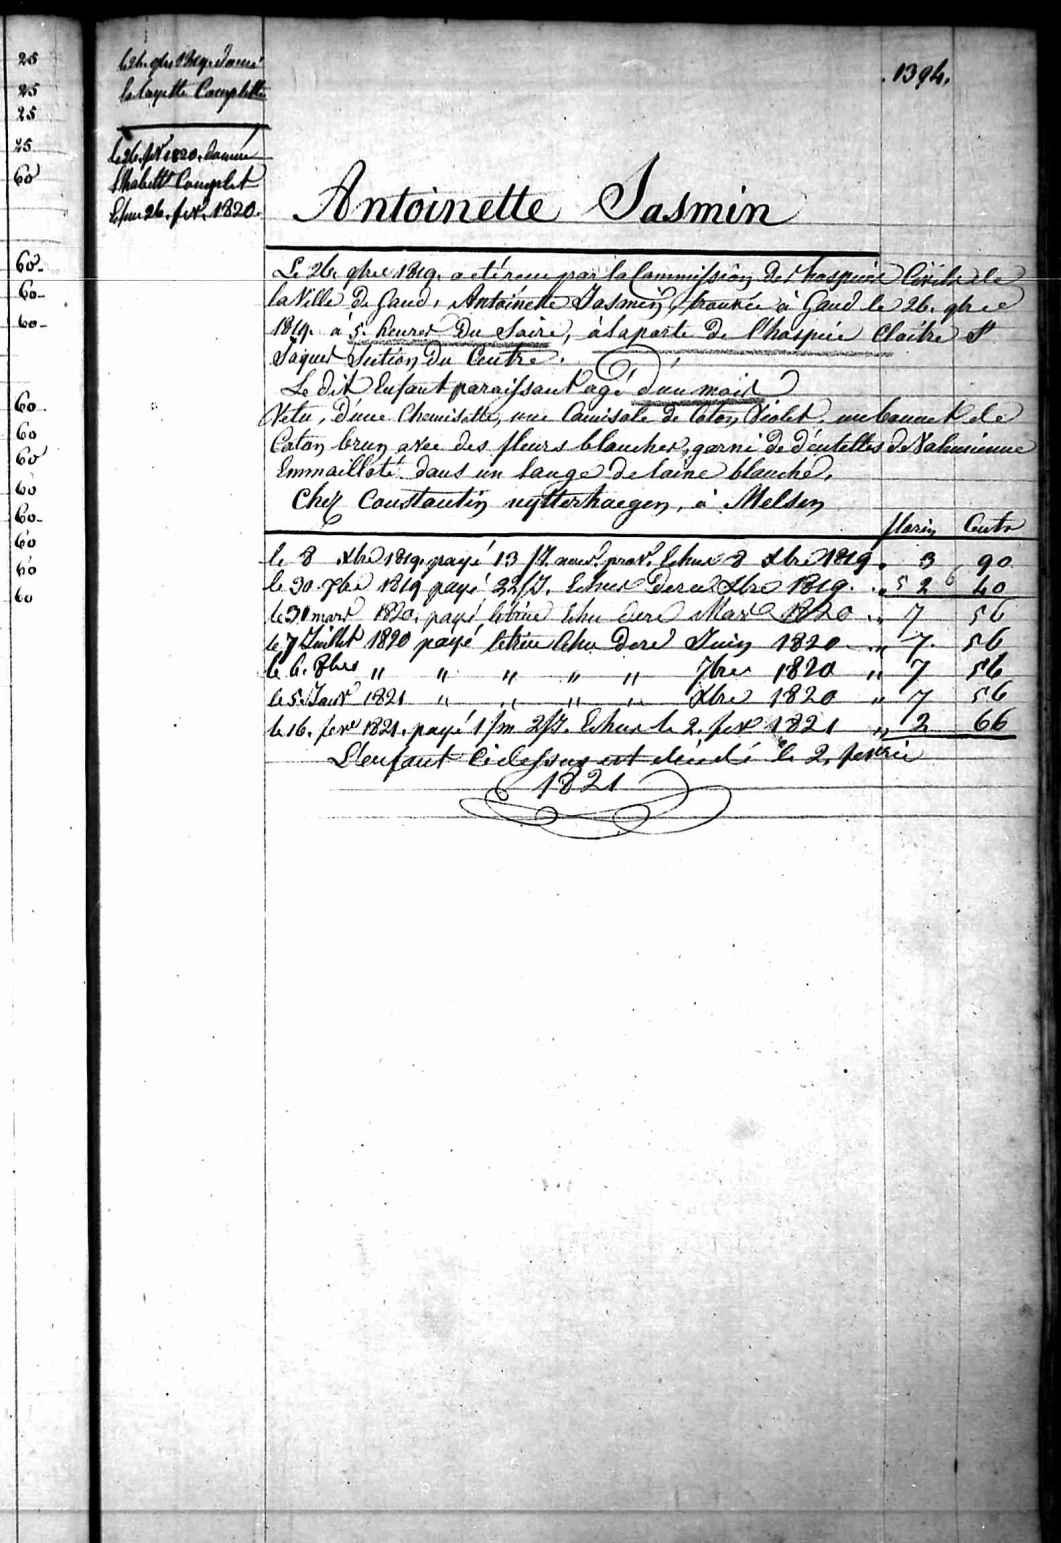 25
25
25
25
60
60-
60-
60-
60
60
60
60
60-
60
60
60
le 26. 9bre 1819. donné
la layette Complette
le 26. fevr 1820. donné
l'habillt Complet
Echu 26. fevr. 1820.
1394.
Antoinette Jasmin
Le 26. 9bre 1819. a eté reçu par la Commission des hospices Civils de
la Ville de Gand, Antoinette Jasmin, trouvée à Gand le 26. 9bre
1819. à 5. heures du Soire, à la porte de l'hospice Cloitre St
Jaques Section du Centre.
Le dit Enfant paraissant agé d'un mois
Vetu, d'une Chemisette, une Camisole de Coton Violet, un bonnet de
Coton brun avec des fleurs blanches, garni de déntelles de Valencienne
Emmailloté dans un lange de laine blanche,
Chez Constantin uytterhaegen, à Melsen
florin Cents
le 8 Xbre 1819. payé 13 fl. nour. prov. Echus 8 Xbre 1819. 3 90
le 30. Xbre 1819 payé 22/7. Echus Dere Xbre 1819. " 2 40
le 31 mars 1820. payé letrim Echu dere Mars 1820 " 7 56
le 7 Juillet 1820 payé letrim Echu Dere Juin 1820 " 7. 56
le 6. 8bre " " " " " 7bre 1820 " 7 56
le 5. Janvr 1821 " " " " Xbre 1820 " 7 56
le 16. fevr 1821. payé 1/m 2/7. Echus le 2. fevr 1821 " 2 66
L'enfant ci dessus est décédé le 2. fevrie
1821